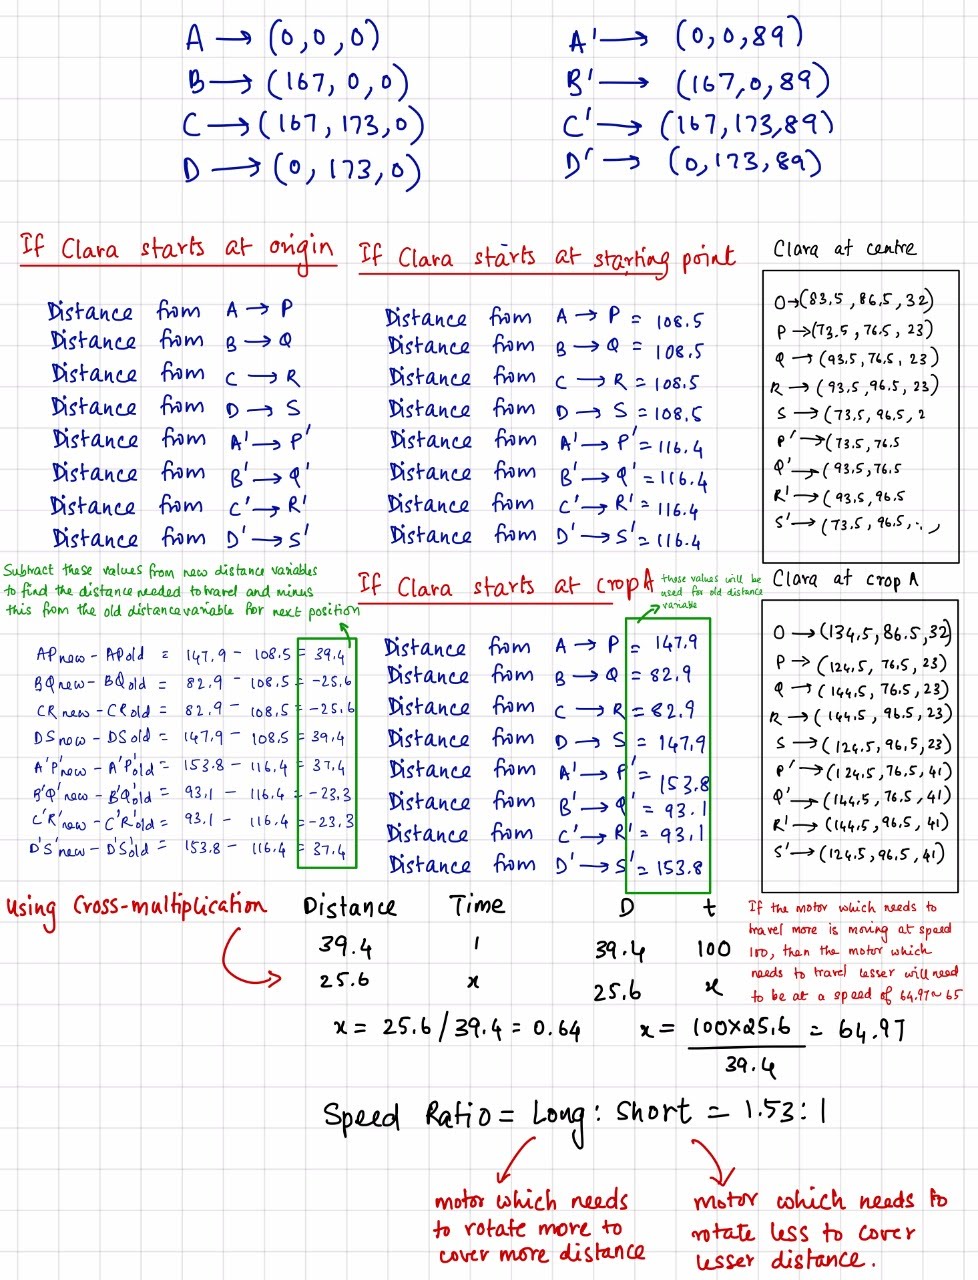 A → (0,0,0)
B → (167, 0, 0)
C → (167, 173, 0)
D → (0, 173, 0)
A' → (0, 0, 89)
B' → (167, 0, 89)
C' → (167, 173, 89)
D' → (0, 173, 89)
If Clara starts at origin
Distance from A → P
Distance from B → Q
Distance from C → R
Distance from D → S
Distance from A' → P'
Distance from B' → Q'
Distance from C' → R'
Distance from D' → S'
If Clara starts at starting point
Distance from A → P = 108.5
Distance from B → Q = 108.5
Distance from C → R = 108.5
Distance from D → S = 108.5
Distance from A' → P' = 116.4
Distance from B' → Q' = 116.4
Distance from C' → R' = 116.4
Distance from D' → S' = 116.4
Clara at centre
O → (83.5, 86.5, 32)
P → (73.5, 76.5, 23)
Q → (93.5, 76.5, 23)
R → (93.5, 96.5, 23)
S → (73.5, 96.5, 2
P' → (73.5, 76.5
Q' → (93.5, 76.5
R' → (93.5, 96.5
S' → (73.5, 96.5,
Subtract these values from new distance variables
to find the distance needed to travel and minus
this from the old distance variable for next position
APnew - APold = 147.9 - 108.5 = 39.4
BQnew - BQold = 82.9 - 108.5 = -25.6
CRnew - CRold = 82.9 - 108.5 = -25.6
DSnew - DSold = 147.9 - 108.5 = 39.4
A'P'new - A'P'old = 153.8 - 116.4 = 37.4
B'Q'new - B'Q'old = 93.1 - 116.4 = -23.3
C'R'new - C'R'old = 93.1 - 116.4 = -23.3
D'S'new - D'S'old = 153.8 - 116.4 = 37.4
If Clara starts at crop A
these values will be
used for old distance
variable
Distance from A → P = 147.9
Distance from B → Q = 82.9
Distance from C → R = 82.9
Distance from D → S = 147.9
Distance from A' → P' = 153.8
Distance from B' → Q' = 93.1
Distance from C' → R' = 93.1
Distance from D' → S' = 153.8
Clara at crop A
O → (134.5, 86.5, 32)
P → (124.5, 76.5, 23)
Q → (144.5, 76.5, 23)
R → (144.5, 96.5, 23)
S → (124.5, 96.5, 23)
P' → (124.5, 76.5, 41)
Q' → (144.5, 76.5, 41)
R' → (144.5, 96.5, 41)
S' → (124.5, 96.5, 41)
Using Cross-multiplication
Distance Time
39.4 1
25.6 x
x = 25.6/39.4 = 0.64
D t
39.4 100
25.6 x
x = 100×25.6 = 64.97
39.4
If the motor which needs to
travel more is moving at speed
100, then the motor which
needs to travel lesser will need
to be at a speed of 64.97 ~ 65
Speed Ratio = Long : Short = 1.53 : 1
motor which needs
to rotate more to
cover more distance
motor which needs to
rotate less to cover
lesser distance.